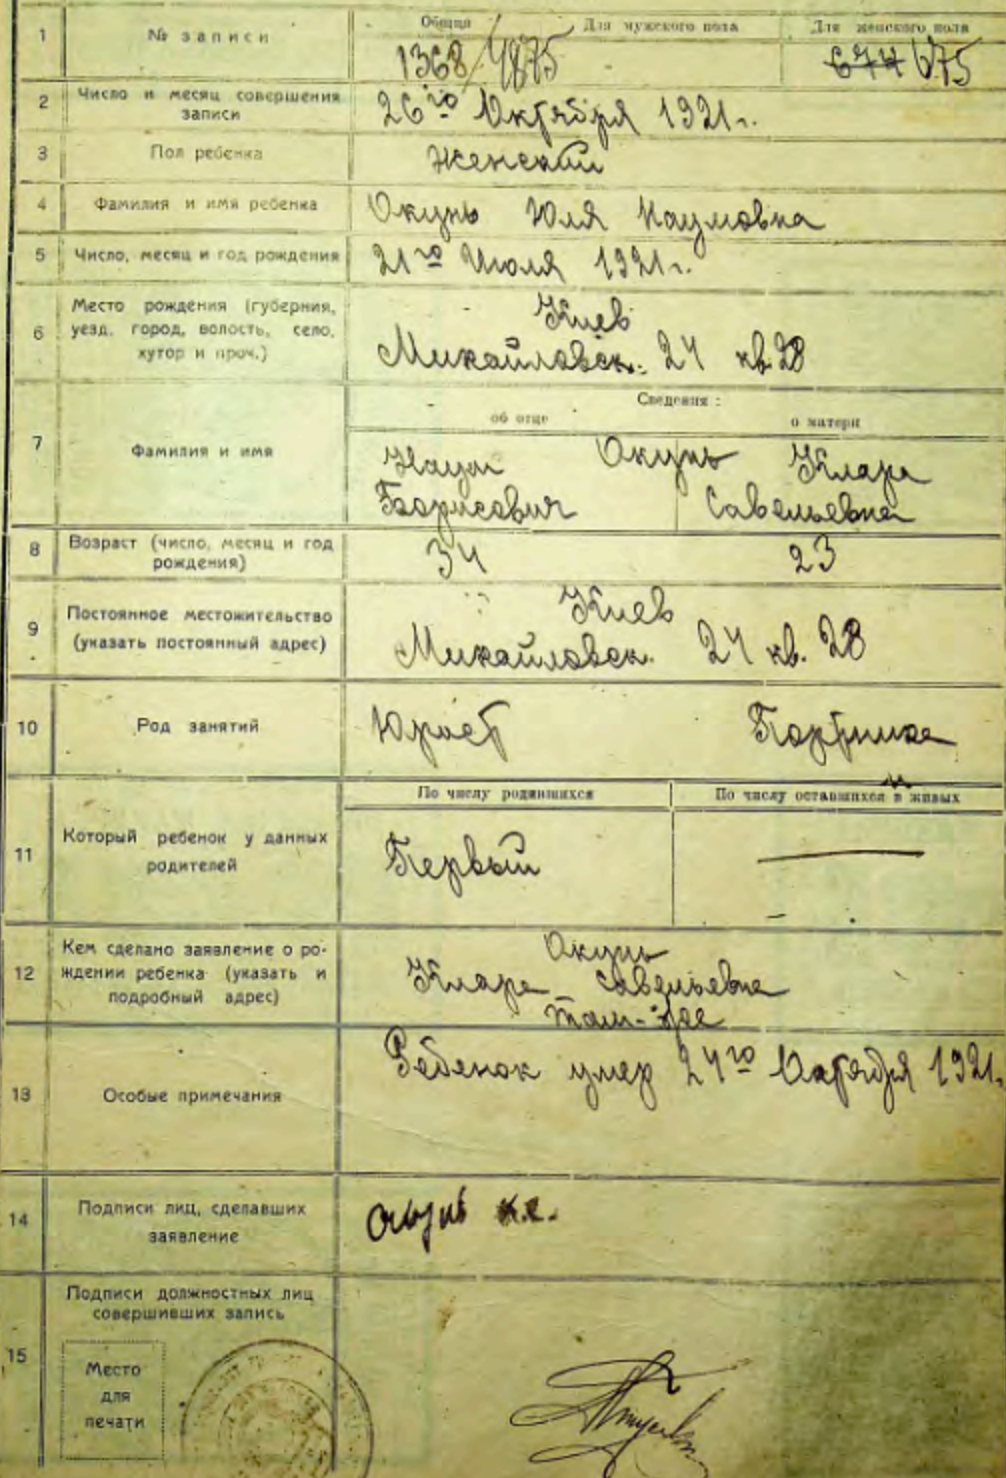 1 № записи Общая Для мужского пола Для женского пола
1368/1875 677 675
2 Число и месяц совершения
записи
26го Октября 1921 г.
3 Пол ребенка Женский
4 Фамилия и имя ребенка Окунь Юля Наумовна
5 Число, месяц и год рождения 21го Июля 1921 г.
6 Место рождения (губерния,
уезд, город, волость, село,
хутор и проч.)
Киев
Михайловск. 24 кв. 28
7 Фамилия и имя
Сведения:
об отце о матери
Наум Окунь Клара
Борисович Савельевна
8 Возраст (число, месяц и год
рождения)
34 23
9 Постоянное местожительство
(указать постоянный адрес)
Киев
Михайловск. 24 кв. 28
10 Род занятий Юрист Портниха
11 Который ребенок у данных
родителей
По числу родившихся По числу оставшихся в живых
Первый
12 Кем сделано заявление о ро-
ждении ребенка (указать и
подробный адрес)
Окунь
Клара Савельевна
там-же
13 Особые примечания
Ребенок умер 24го Октября 1921 г.
14 Подписи лиц, сделавших
заявление
Окунь К.С.
15 Подписи должностных лиц
совершивших запись
Место
для
печати